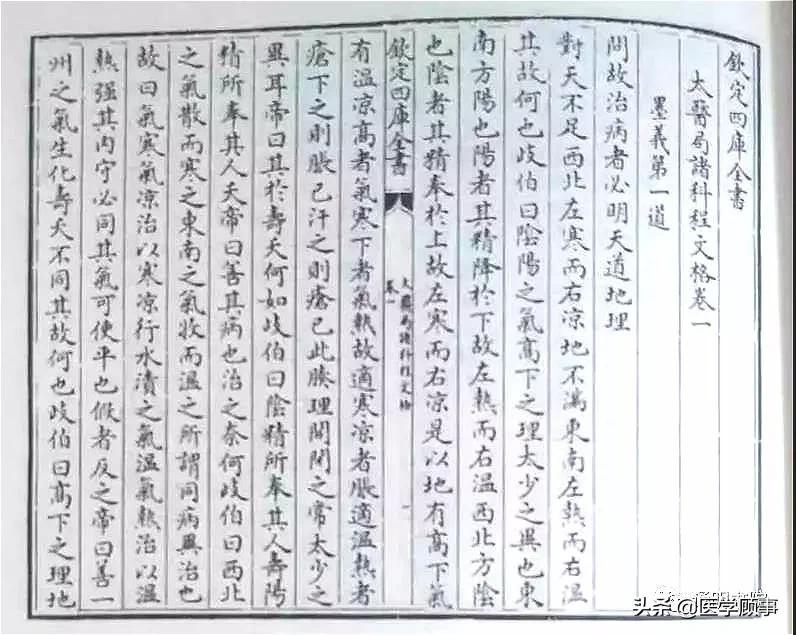 欽定四庫全書
太醫局諸科程文格卷一
墨義第一道
問故治病者必明天道地理
對天不足西北左寒而右凉地不滿東南左熱而右温
其故何也歧伯曰陰陽之氣高下之理太少之異也東
南方陽也陽者其精降於下故左熱而右温西北方陰
也陰者其精奉於上故左寒而右凉是以地有高下氣
欽定四庫全書
太醫局諸科程文格
卷一
一
有温凉高者氣寒下者氣熱故適寒凉者脹適温熱者
瘡下之則脹已汗之則瘡已此腠理開閉之常太少之
異耳帝曰其於壽夭何如歧伯曰陰精所奉其人壽陽
精所奉其人夭帝曰善其病也治之奈何歧伯曰西北
之氣散而寒之東南之氣收而温之所謂同病異治也
故曰氣寒氣凉治以寒凉行水漬之氣温氣熱治以温
熱强其内守必同其氣可使平也假者反之帝曰善一
州之氣生化壽夭不同其故何也歧伯曰高下之理地
头条@医学顾事